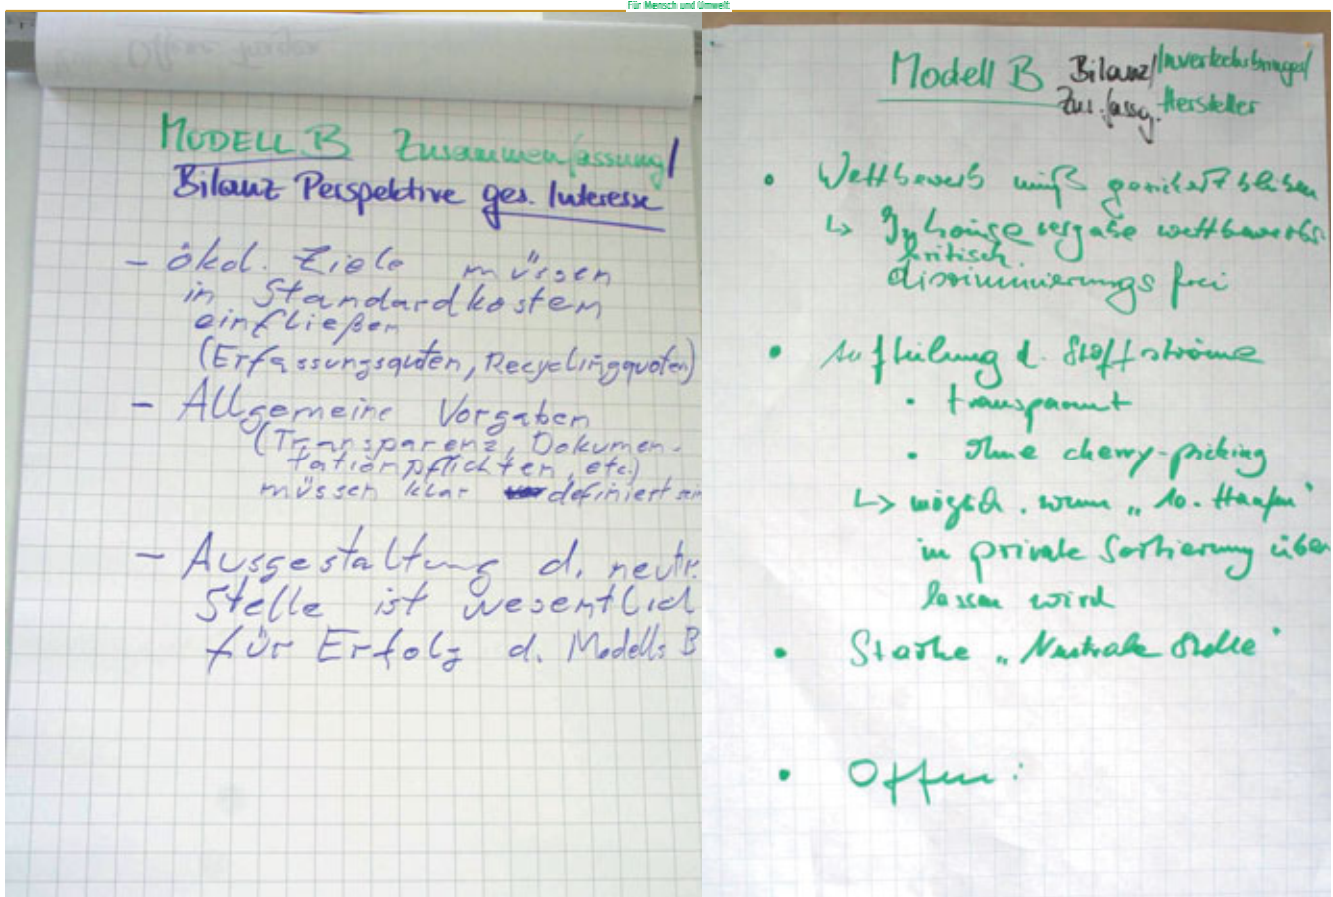 Für Mensch und Umwelt
Offene Fragen
MODELL B Zusammenfassung/
Bilanz Perspektive ges. Interesse
- ökol. Ziele müssen
in Standardkosten
einfließen
(Erfassungsquten, Recyclingquoten)
- Allgemeine Vorgaben
(Transparenz, Dokumen-
tationpflichten, etc.)
müssen klar definiert
- Ausgestaltung d. neutr.
Stelle ist wesentlich
für Erfolg d. Modells B
Modell B Bilanz/Inverkehrbringer/
Zus.fassg. Hersteller
• Wettbewerb muß gesichert bleiben
↳ Inhousevergabe wettbewerbs
kritisch
discriminierungsfrei
• Aufteilung d. Stoffströme
• transparent
• ohne cherry-picking
↳ möglich, wenn „10. Haufen"
in private Sortierung über
lassen wird
• Starke „Neutrale Stelle"
• Offen: